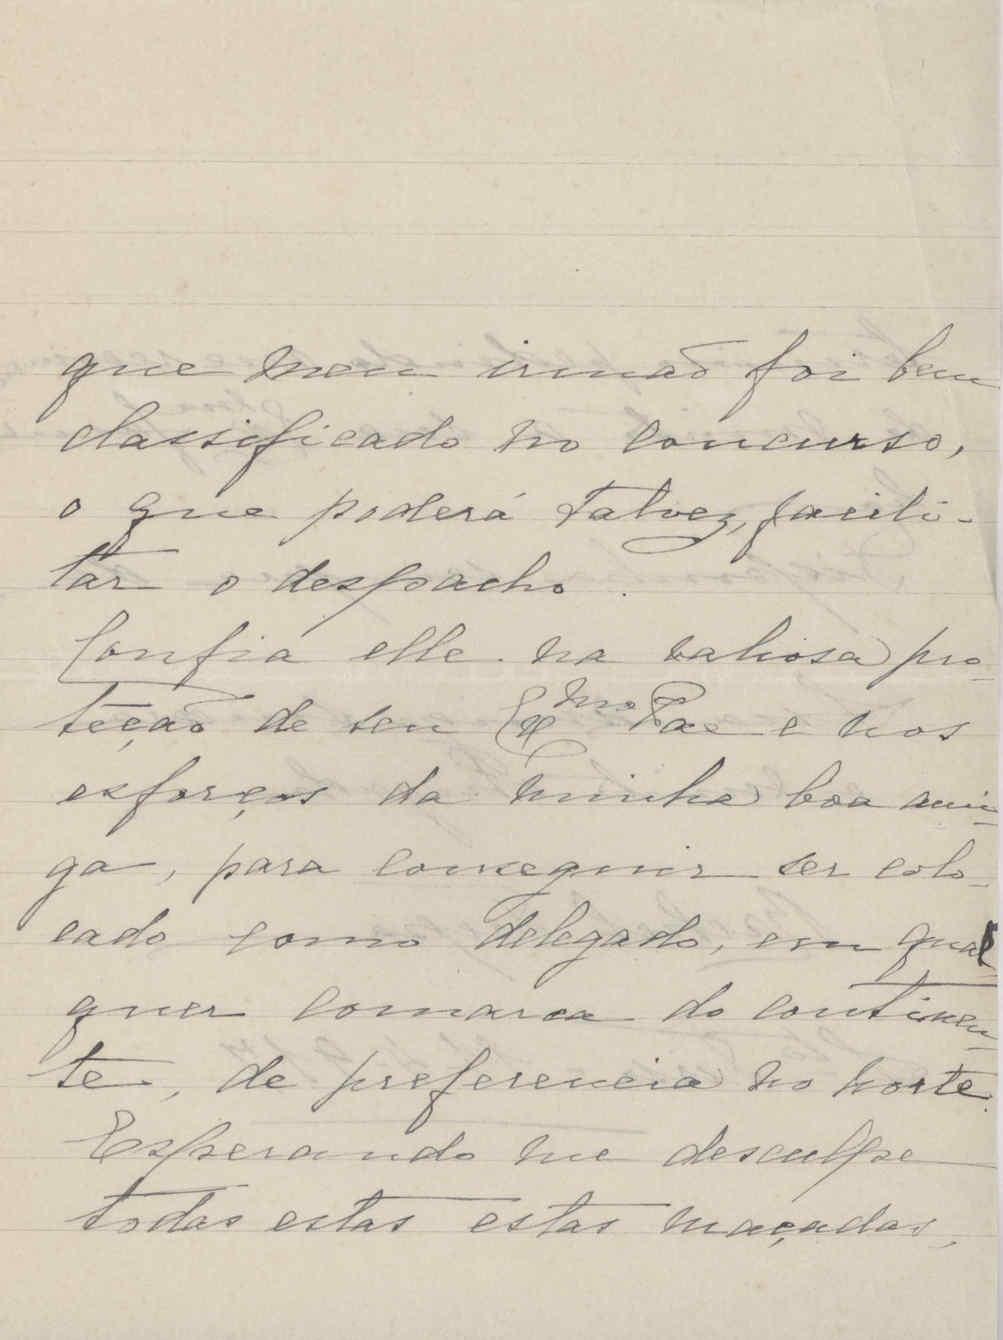 que meu irmão foi bem
classificado no concurso,
o que poderá talvez, facili-
tar o despacho.
Confia elle na valiosa pro-
teção de seu Exmo Pae e nos
esforços da minha boa ami-
ga, para conseguir ser colo-
cado como delegado, em qual
quer comarca do continen-
te, de preferencia no norte.
Esperando me desculpe
todas estas estas maçadas,